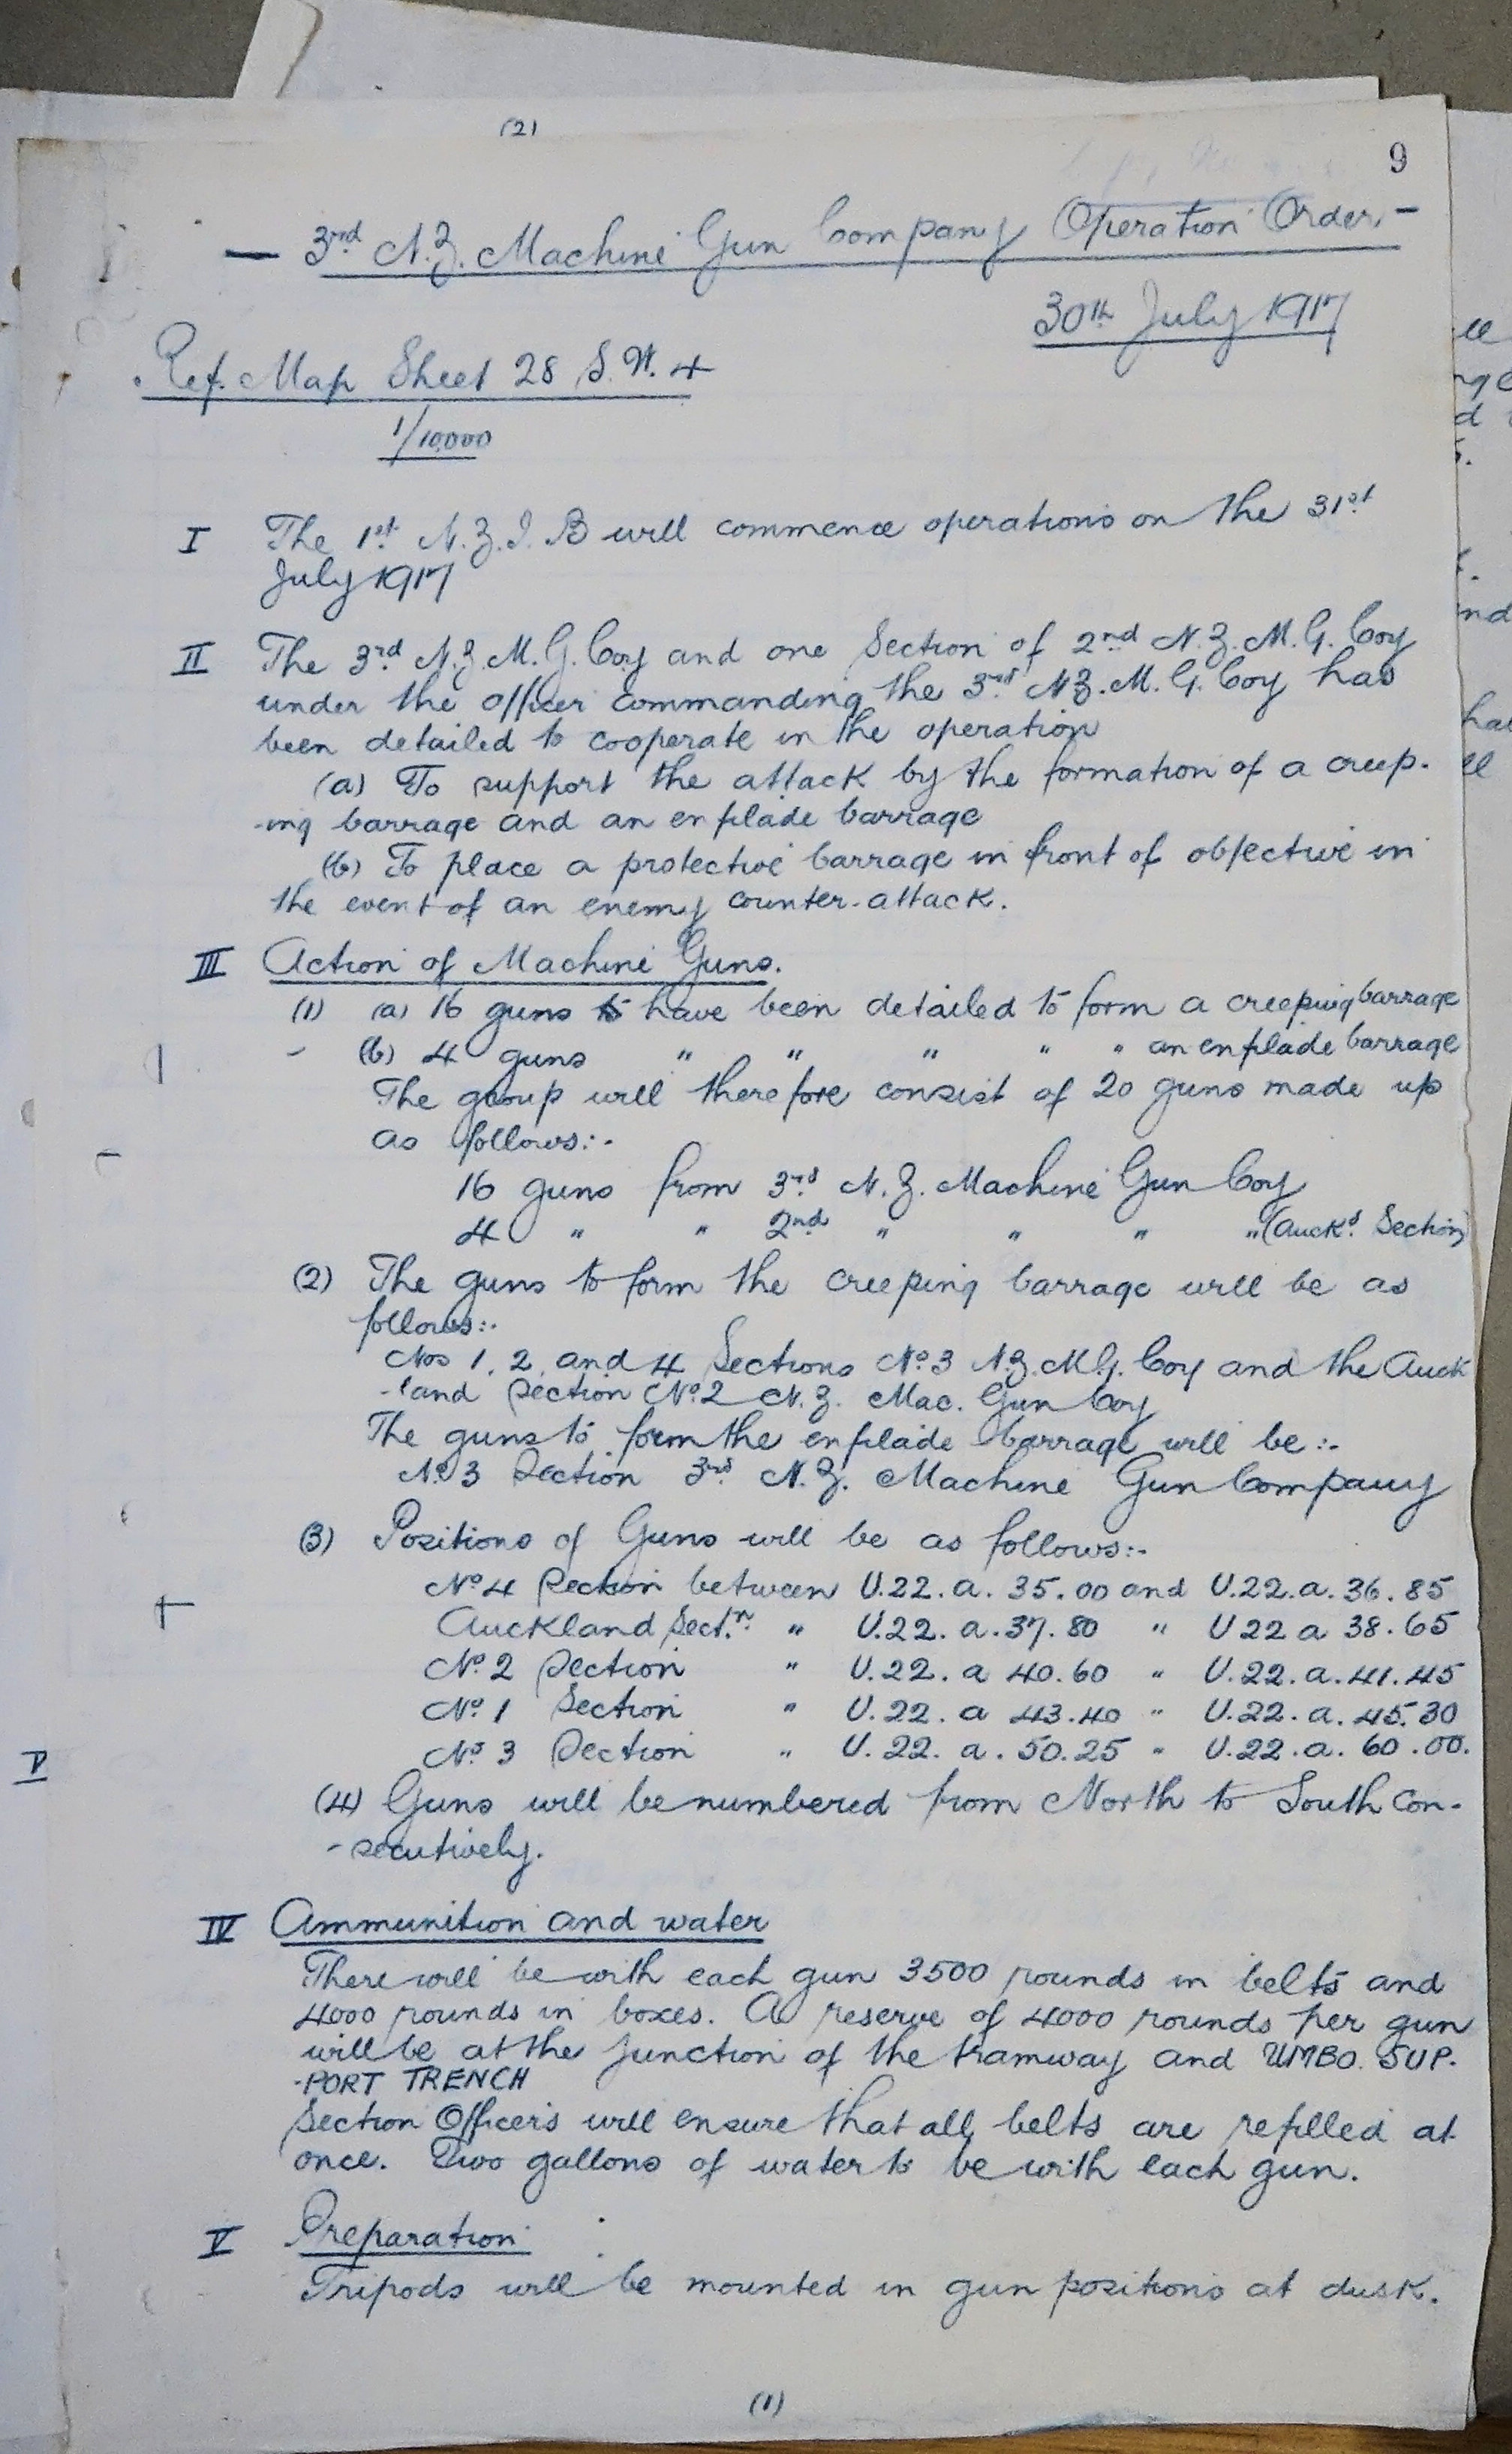 (2)
9
— 3rd N.Z. Machine Gun Company Operation Order. —
30th July 1917
Ref. Map Sheet 28 S.W. 4
1/10,000
I The 1st N.Z.I.B will commence operations on the 31st
July 1917
II The 3rd N.Z.M.G. Coy and one Section of 2nd N.Z.M.G. Coy
under the officer commanding the 3rd N.Z.M.G. Coy has
been detailed to cooperate in the operation
(a) To support the attack by the formation of a creep-
-ing barrage and an enfilade barrage
(b) To place a protective barrage in front of objective in
the event of an enemy counter-attack.
III Action of Machine Guns.
(1) (a) 16 guns have been detailed to form a creeping barrage
(b) 4 guns " " " " " an enfilade barrage
The group will therefore consist of 20 guns made up
as follows:-
16 guns from 3rd N.Z. Machine Gun Coy
4 " " 2nd " " " " (Auckd. Section)
(2) The guns to form the creeping barrage will be as
follows:-
Nos 1, 2, and 4 Sections No 3 N.Z.M.G. Coy and the Auck
-land Section No 2 N.Z. Mac. Gun Coy
The guns to form the enfilade barrage will be:-
No 3 Section 3rd N.Z. Machine Gun Company
(3) Positions of Guns will be as follows:-
No 4 Section between U.22.a.35.00 and U.22.a.36.85
Auckland Sectn. " U.22.a.37.80 " U 22 a 38.65
No. 2 Section " U.22.a 40.60 " U.22.a.41.45
No. 1 Section " U.22.a 43.40 " U.22.a.45.30
No 3 Section " U.22.a.50.25 " U.22.a.60.00.
V
(4) Guns will be numbered from North to South con-
-secutively.
IV Ammunition and water
There will be with each gun 3500 rounds in belts and
4000 rounds in boxes. A reserve of 4000 rounds per gun
will be at the junction of the tramway and UMBO. SUP-
-PORT TRENCH
Section Officers will ensure that all belts are refilled at
once. Two gallons of water to be with each gun.
V Preparation
Tripods will be mounted in gun positions at dusk.
(1)